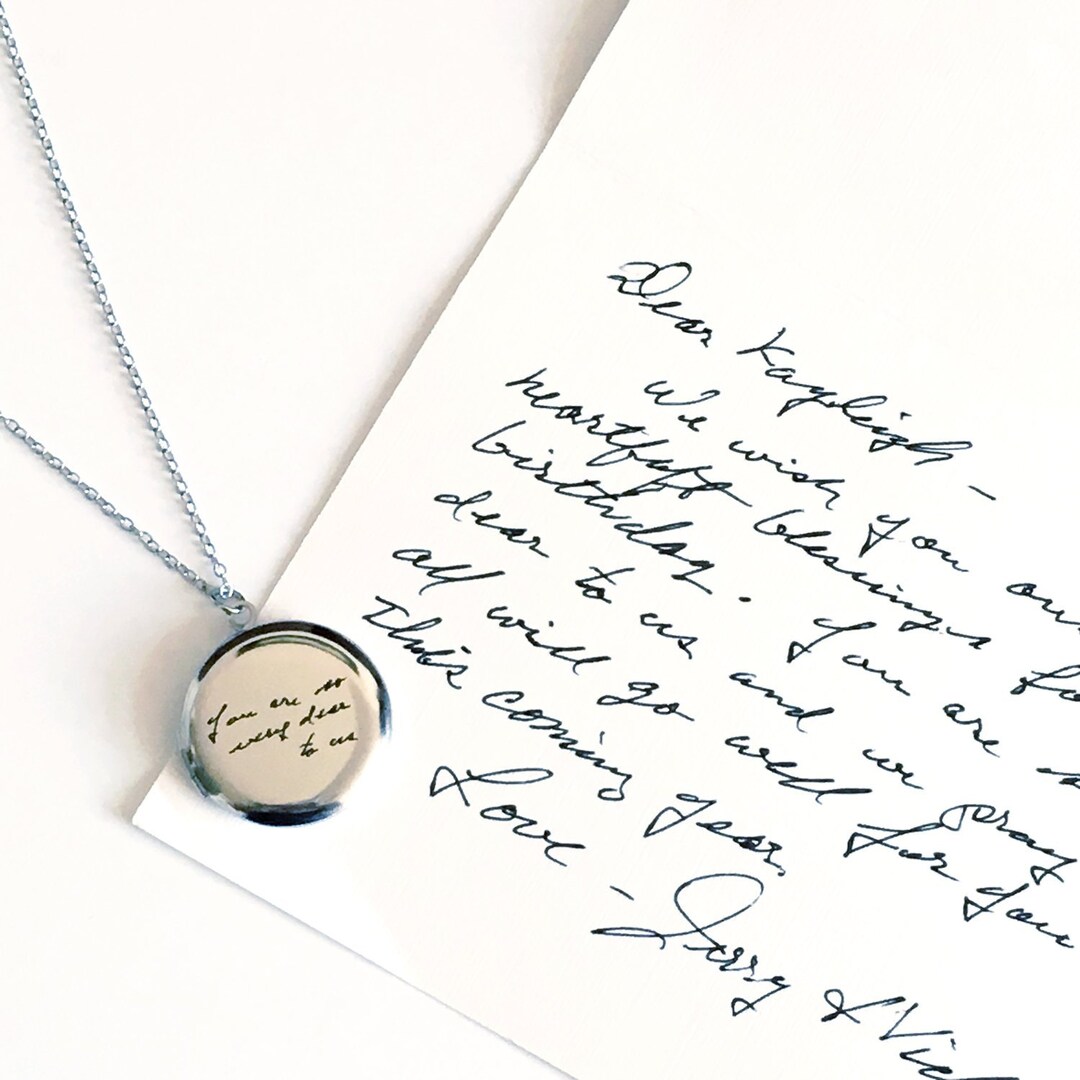 you are so
very dear
to us
Dear Kayleigh –
We wish you
heartfelt blessings
birthday. You are
dear to us and we pray
all will go well for you
this coming year.
Love –